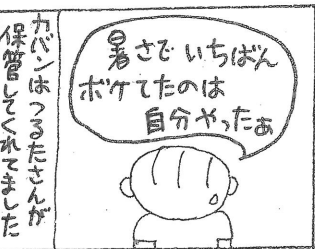 暑さで いちばん
ボケてたのは
自分やったぁ
カバンはつるたさんが
保管してくれてました